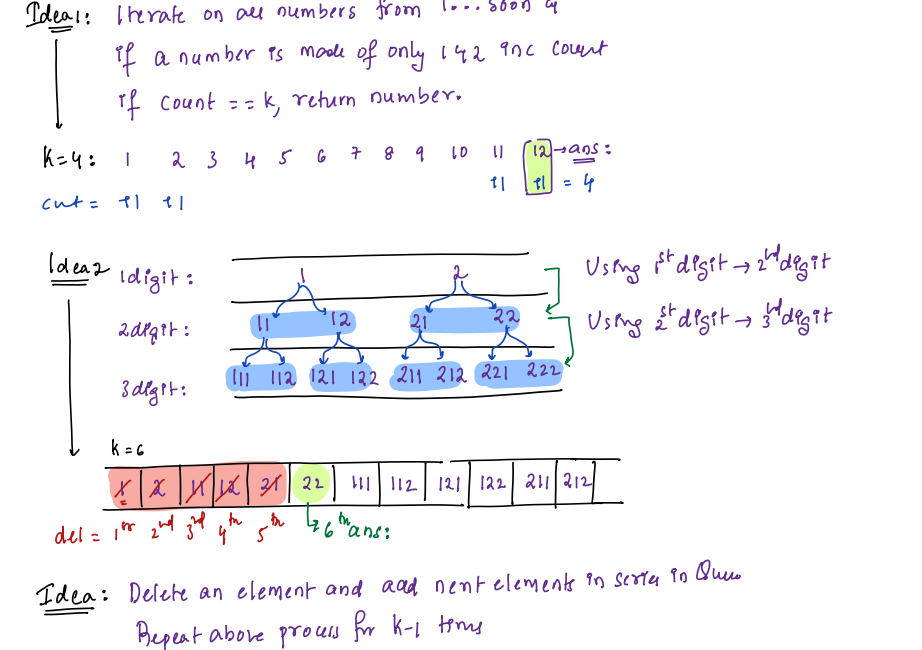 Idea1: Iterate on all numbers from 1... soon &
if a number is made of only 1 & 2 inc count
if count == k, return number.
k=4: 1 2 3 4 5 6 7 8 9 10 11 12 → ans:
cnt = +1 +1 +1 +1 = 4
Idea2
1digit: 1 2
Using 1st digit → 2nd digit
2digit: 11 12 21 22
Using 2st digit → 3rd digit
3digit: 111 112 121 122 211 212 221 222
k=6
1 2 11 12 21 22 111 112 121 122 211 212
del = 1st 2nd 3rd 4th 5th 6th ans:
Idea: Delete an element and add next elements in series in Queue
Repeat above process for k-1 times